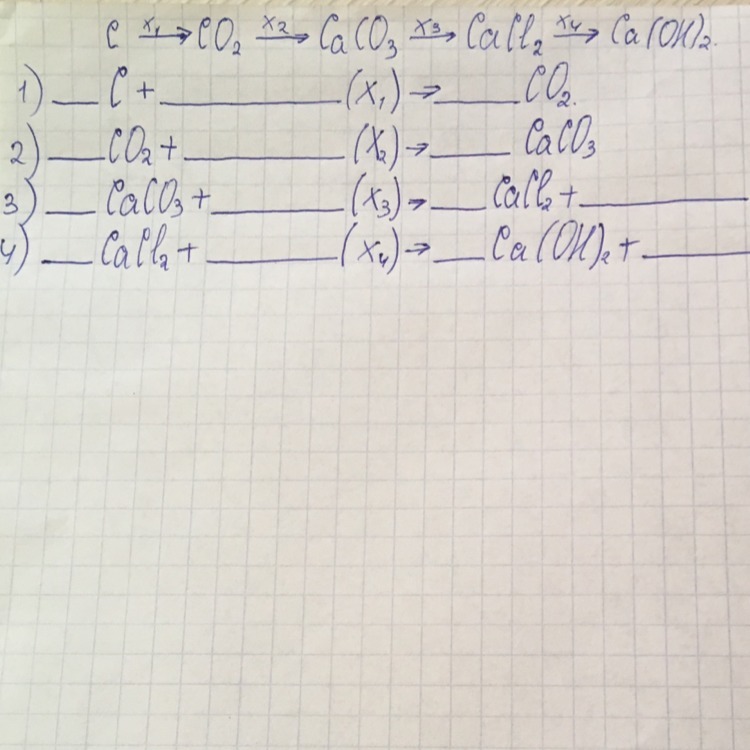 C X₁→ CO₂ X₂→ CaCO₃ X₃→ CaCl₂ X₄→ Ca(OH)₂.
1) ___ C + ___________ (X₁) → _____ CO₂.
2) ___ CO₂ + __________ (X₂) → _____ CaCO₃
3) ___ CaCO₃ + ________ (X₃) → ___ CaCl₂ + __________
4) ___ CaCl₂ + ________ (X₄) → ___ Ca(OH)₂ + _______